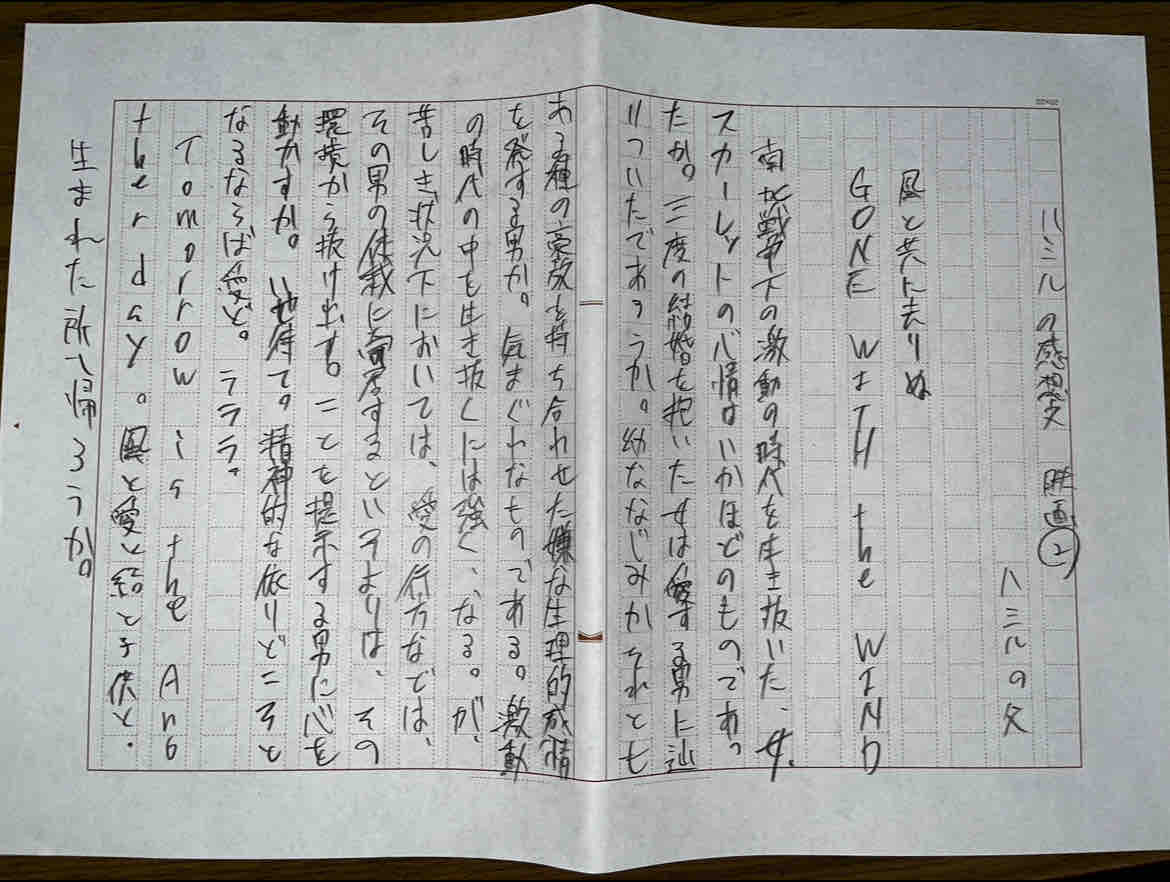 ハミルの感想文 映画②
ハミルの父
風と共に去りぬ
GONE WITH the WIND
南北戦争下の激動の時代を生き抜いた、女、
スカーレットの心情はいかほどのものであっ
たか。三度の結婚を抱いた女は愛する男に辿
りついたであろうか。幼ななじみかそれとも
ある種の豪放を持ち合わせた嫌な生理的感情
を発する男か。気まぐれなものである。激動
の時代の中を生き抜くには強く、なる。が、
苦しき状況下においては、愛の行方などは、
その男の体裁に寄与するというよりは、その
環境から抜け出す。ことを提示する男に心を
動かすか。い他侍て。精神的な依りどころと
なるならば愛と。ラララ。
Tomorrow is the Ano
ther day。風と愛と結と子供と、
生まれた所へ帰ろうか。